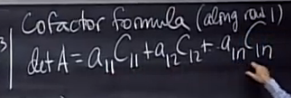 Cofactor formula (along row 1)
3
det A = a₁₁C₁₁ + a₁₂C₁₂ + ·· a₁ₙC₁ₙ